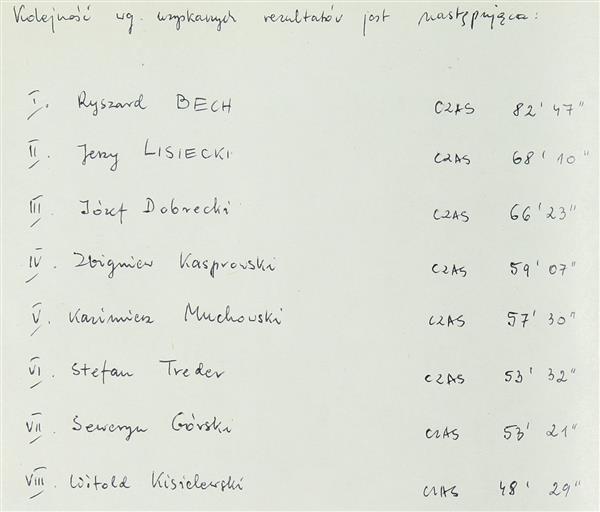 Kolejność wg. uzyskanych rezultatów jest następująca:
I. Ryszard BECH CZAS 82' 47"
II. Jerzy LISIECKI CZAS 68' 10"
III. Józef Dobrecki CZAS 66' 23"
IV. Zbigniew Kasprowski CZAS 59' 07"
V. Kazimierz Muchowski CZAS 57' 30"
VI. Stefan Treder CZAS 53' 32"
VII. Seweryn Górski CZAS 53' 21"
VIII. Witold Kisielewski CZAS 48' 29"